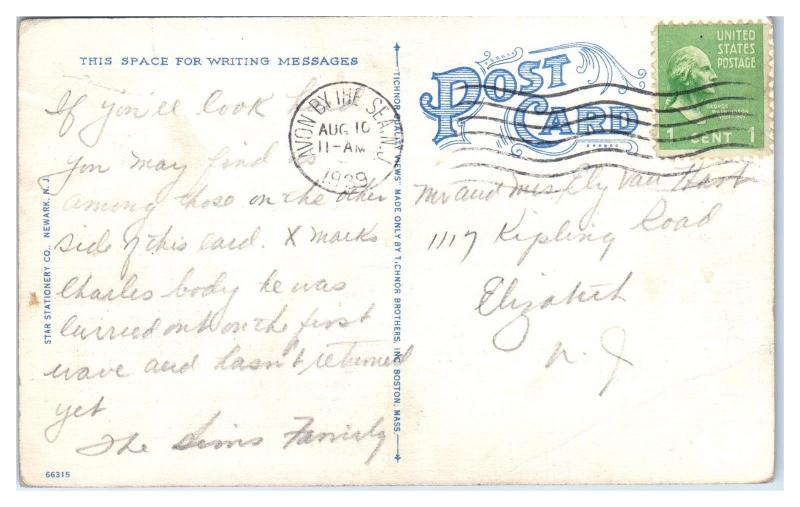 THIS SPACE FOR WRITING MESSAGES
If you'll look
you may find us
among those on the other
side of this card. X marks
Charles body he was
carried out on the first
wave and hasn't returned
yet
The Sims Family
66315
STAR STATIONERY CO., NEWARK, N. J.
"TICHNOR QUALITY VIEWS" MADE ONLY BY TICHNOR BROTHERS, INC. BOSTON, MASS.
POST CARD
AVON BY THE SEA, N.J.
AUG 10
11-AM
1939
UNITED
STATES
POSTAGE
GEORGE
WASHINGTON
1 CENT 1
Mr and Mrs. Ely Van Horn
1117 Kipling Road
Elizabeth
N. J